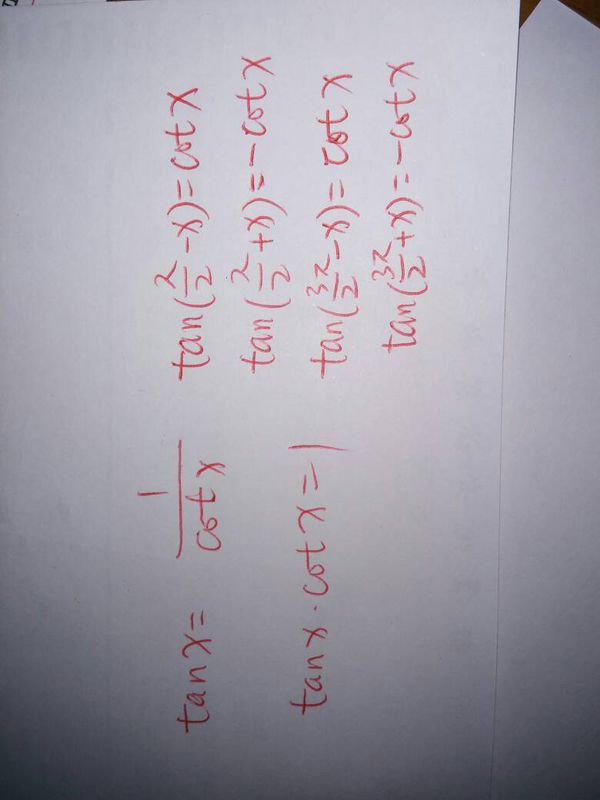 tan x = 1/cot x
tan x · cot x = 1
tan(π/2 - x) = cot x
tan(π/2 + x) = -cot x
tan(3π/2 - x) = cot x
tan(3π/2 + x) = -cot x